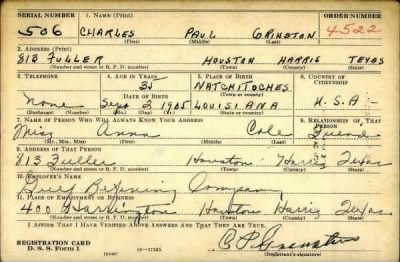 SERIAL NUMBER 1. NAME (Print) ORDER NUMBER
506 CHARLES PAUL 4522
(First) (Middle) (Last)
2. ADDRESS (Print)
813 FULLER HOUSTON HARRIS TEXAS
(Number and street or R. F. D. number) (Town) (County) (State)
3. TELEPHONE 4. AGE IN YEARS 5. PLACE OF BIRTH 6. COUNTRY OF CITIZENSHIP
35 NATCHITOCHES
DATE OF BIRTH (Town or county)
None Sept 2 1905 LOUISIANA U.S.A.
(Exchange) (Number) (Mo.) (Day) (Yr.) (State or country)
7. NAME OF PERSON WHO WILL ALWAYS KNOW YOUR ADDRESS 8. RELATIONSHIP OF THAT PERSON
Miss Anna Cole Friend
(Mr., Mrs., Miss) (First) (Middle) (Last)
9. ADDRESS OF THAT PERSON
813 Fuller Houston Harris Texas
(Number and street or R. F. D. number) (Town) (County) (State)
10. EMPLOYER'S NAME
Gulf Company
11. PLACE OF EMPLOYMENT OR BUSINESS
400 Harrington Houston Harris Texas
(Number and street or R. F. D. number) (Town) (County) (State)
I AFFIRM THAT I HAVE VERIFIED ABOVE ANSWERS AND THAT THEY ARE TRUE.
REGISTRATION CARD
D. S. S. Form 1 (over)